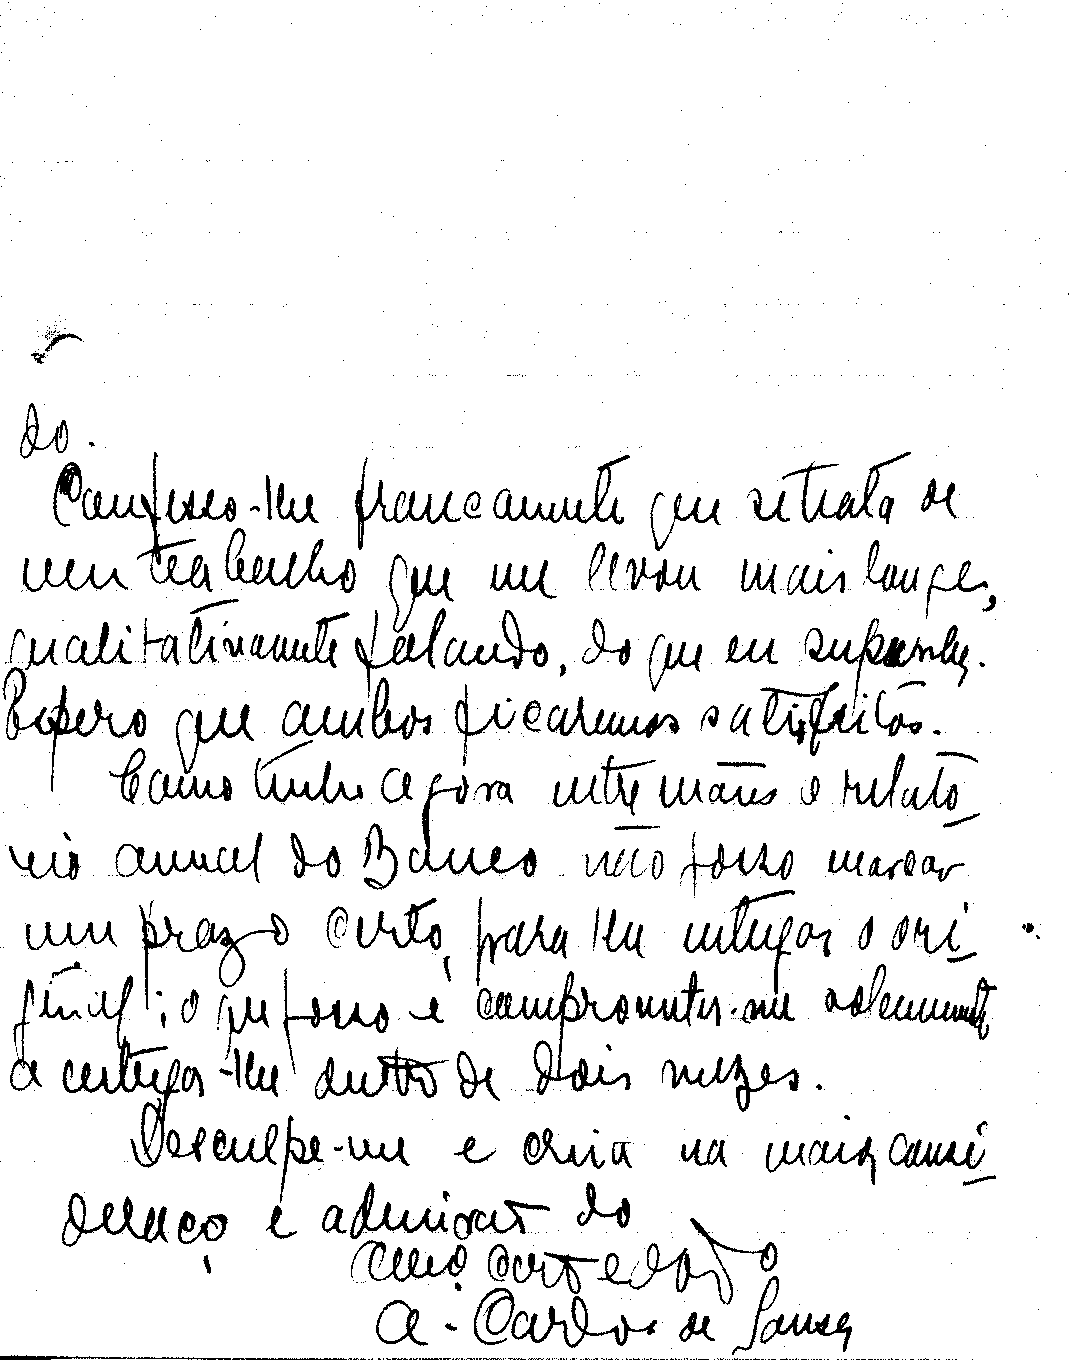 do.
Confesso-lhe francamente que se trata de
um trabalho que me levou mais longe,
qualitativamente falando, do que eu supunha.
Espero que ambos ficaremos satisfeitos.
Como tenho agora entre mãos o relató-
rio anual do Banco não posso marcar
um prazo certo, para lhe entregar o ori-
ginal; o que posso é comprometer-me solenemente
a entregar-lhe dentro de dois mezes.
Desculpe-me e creia na maior consi-
deração e admiração do
A. Carlos de Sousa